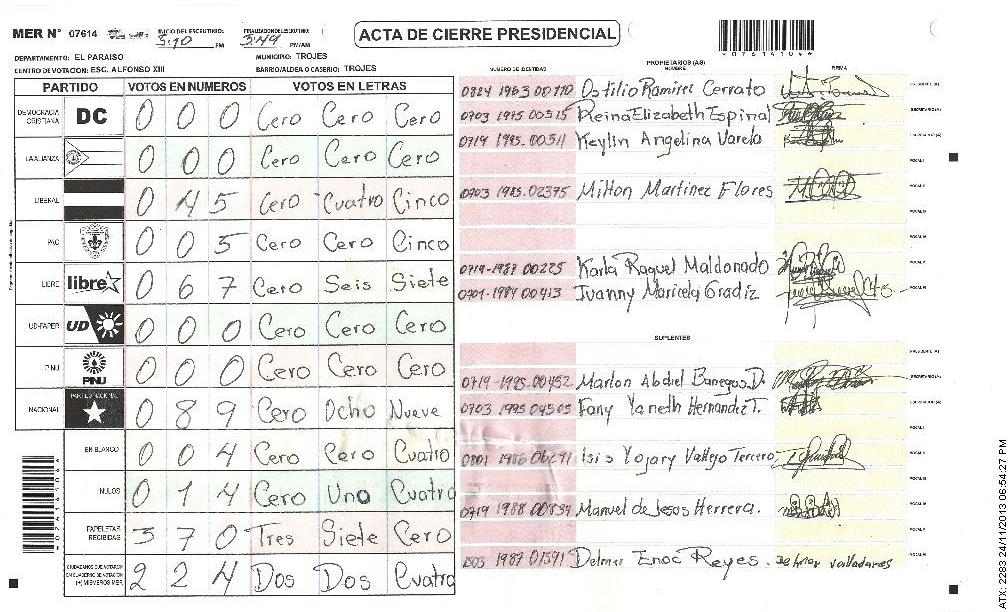 MER N° 07614 INICIO DEL ESCRUTINIO: 3:10 PM FINALIZACION DEL ESCRUTINIO: 3:49 PM/AM
ACTA DE CIERRE PRESIDENCIAL
*07614104*
DEPARTAMENTO: EL PARAISO MUNICIPIO: TROJES
CENTRO DE VOTACION: ESC. ALFONSO XIII BARRIO/ALDEA O CASERIO: TROJES
PARTIDO VOTOS EN NUMEROS VOTOS EN LETRAS
DEMOCRACIA CRISTIANA DC 0 0 0 Cero Cero Cero
LA ALIANZA 0 0 0 Cero Cero Cero
LIBERAL 0 4 5 Cero Cuatro Cinco
PAC 0 0 5 Cero Cero Cinco
LIBRE libre 0 6 7 Cero Seis Siete
UD-FAPER UD 0 0 0 Cero Cero Cero
PINU PINU 0 0 0 Cero Cero Cero
NACIONAL PARTIDO NACIONAL 0 8 9 Cero Ocho Nueve
EN BLANCO 0 0 4 Cero Cero Cuatro
NULOS 0 1 4 Cero Uno Cuatro
PAPELETAS RECIBIDAS 3 7 0 Tres Siete Cero
CIUDADANOS QUE VOTARON 2 2 4 Dos Dos Cuatro
PROPIETARIOS (AS)
NUMERO DE IDENTIDAD NOMBRE FIRMA
0824 1963 00770 Ostilio Ramirez Cerrato
0703 1975 00515 Reina Elizabeth Espinal
0719 1985 00511 Keylin Angelina Varela
0703 1985.02375 Milton Martinez Flores
0719-1987 00225 Karla Raquel Maldonado
0704-1984 00413 Ivanny Maricela Gradiz
SUPLENTES
0719-1985-00452 Marlon Abdiel Banegas D.
0703 1995 04505 Fany Yaneth Hernandez T.
0801 1986 06291 Isis Yojary Vallejo Tercero
0719 1988 00834 Manuel de Jesus Herrera.
1503 1987 01591 Delmar Enoc Reyes. delmar valladares
ATX: 2283 24/11/2013 06:54:27 PM